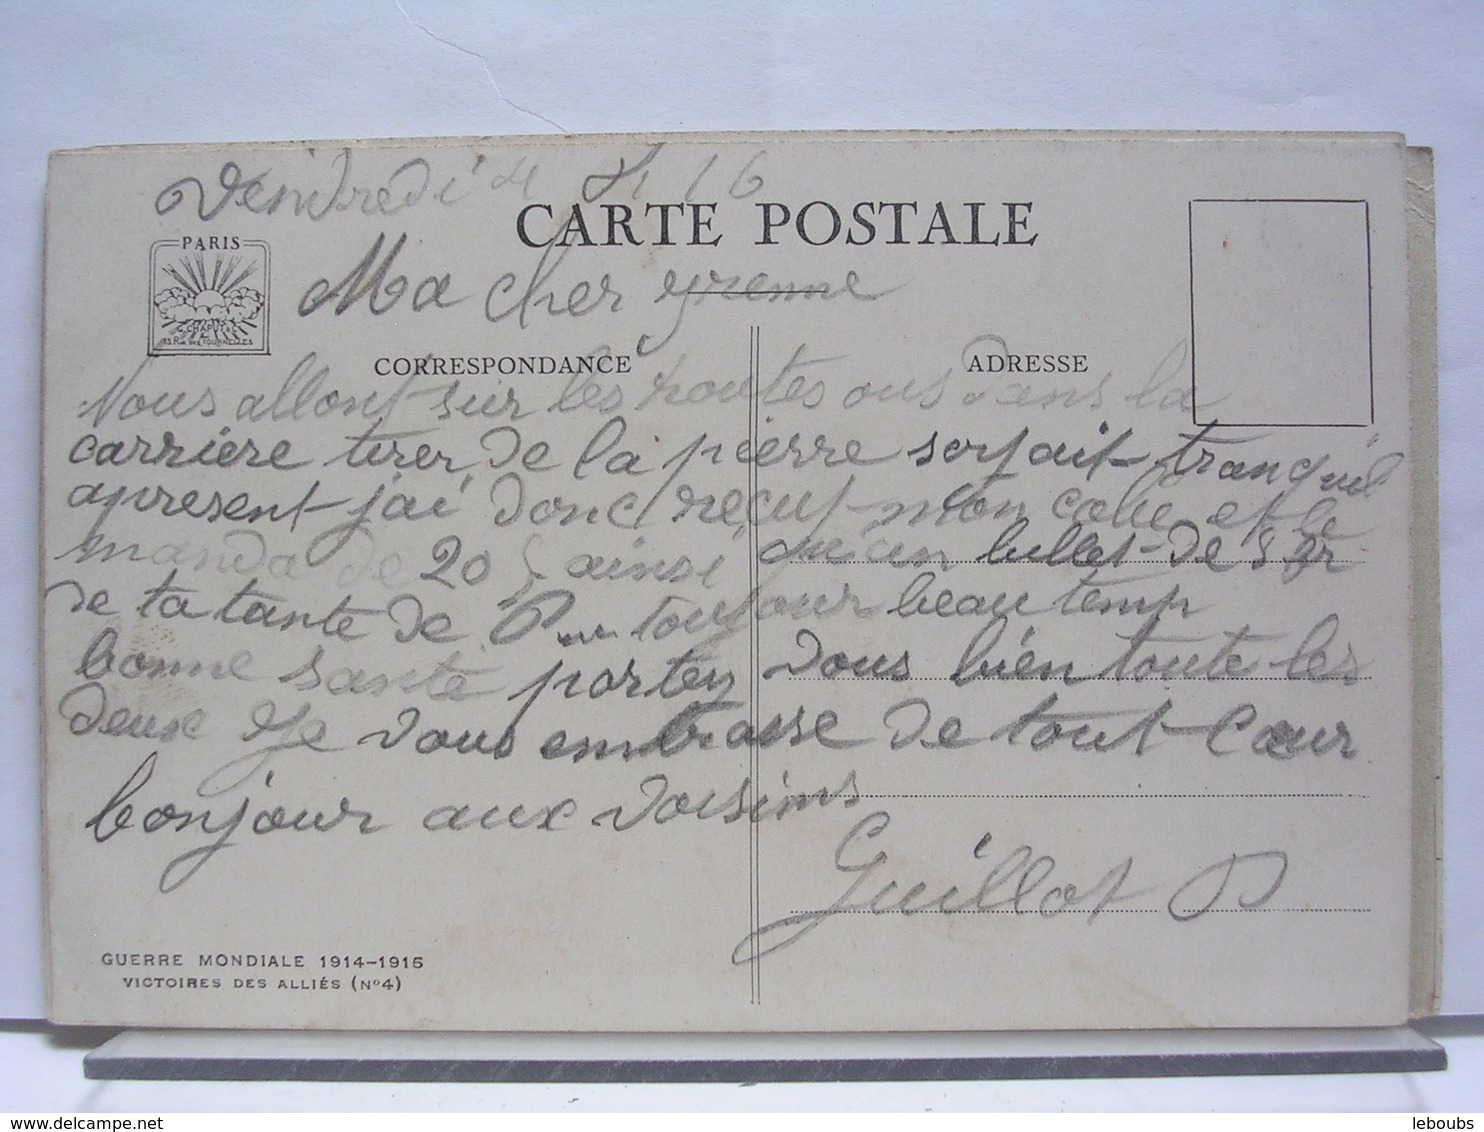 Vendredi 4 16
CARTE POSTALE
PARIS
G. CHAPUY & C
15 RUE DES TOURNELLES
Ma cher yrenne
CORRESPONDANCE
ADRESSE
Nous allont sur les routes ous dans la
carrière tirer de la pierre sa fait tranquil
apresent j'ai donc reçut mon colie et le
manda de 20 ainsi qu'un billet de 5 fr
de ta tante de P toujour beau temp
bonne santé portez vous bien toute les
deux Je vous embrasse de tout Cœur
bonjour aux voisins
Guillot P
GUERRE MONDIALE 1914-1915
VICTOIRES DES ALLIÉS (Nº4)
delcampe.net
leboubs